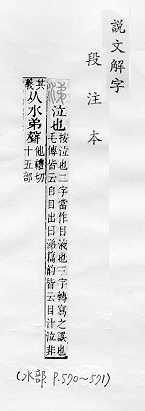 說文解字
段注本
涕 泣也 按泣也二字當作目液也三字轉寫之誤也
毛傳皆云自目出曰涕篇韵皆云目汁泣非
其
義
从水弟聲
他禮切
十五部
(水部 P.570~571)